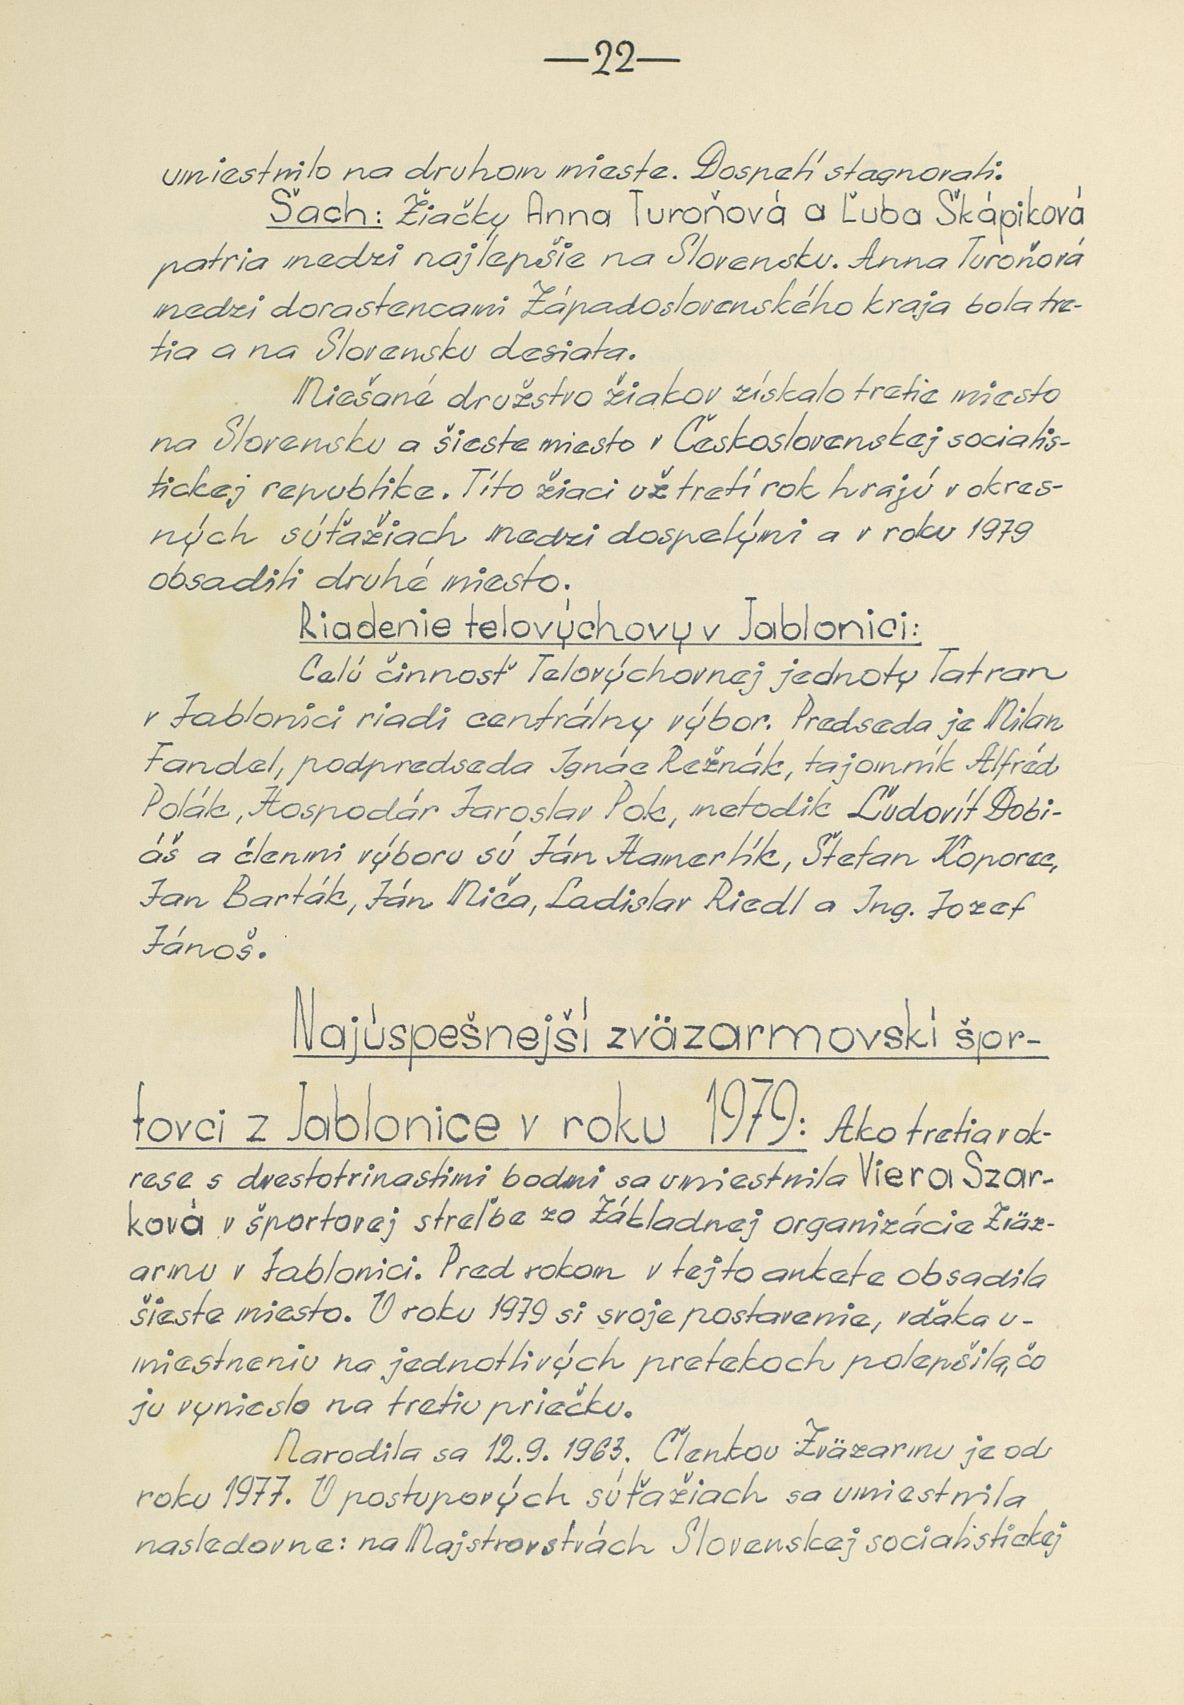 —22—
umiestnilo na druhom mieste. Dospelí stagnovali.
Šach: Žiačky Anna Turoňová a Ľuba Škápiková
patria medzi najlepšie na Slovensku. Anna Turoňová
medzi dorastencami Západoslovenského kraja bola tre-
tia a na Slovensku desiata.
Miešané družstvo žiakov získalo tretie miesto
na Slovensku a šieste miesto v Československej socialis-
tickej republike. Títo žiaci už tretí rok hrajú v okres-
ných súťažiach medzi dospelými a v roku 1979
obsadili druhé miesto.
Riadenie telovýchovy v Jablonici:
Celú činnosť Telovýchovnej jednoty Tatran
v Jablonici riadi centrálny výbor. Predseda je Milan
Fandel, podpredseda Ignác Režnák, tajomník Alfréd
Polák, Hospodár Jaroslav Pok, metodik Ľudovít Dobi-
áš a členmi výboru sú Ján Hamerlík, Štefan Koporec,
Jan Barták, Ján Miča, Ladislav Riedl a Ing. Jozef
Jánoš.
Najúspešnejší zväzarmovskí špor-
tovci z Jablonice v roku 1979: Ako tretia v ok-
rese s dvestotrinastimi bodmi sa umiestnila Viera Szar-
ková v športovej streľbe zo Základnej organizácie Zväz-
armu v Jablonici. Pred rokom v tejto ankete obsadila
šieste miesto. V roku 1979 si svoje postavenie, vďaka u-
miestneniu na jednotlivých pretekoch polepšila, čo
ju vynieslo na tretiu priečku.
Narodila sa 12.9. 1963. Členkou Zväzarmu je od
roku 1977. V postupových súťažiach sa umiestnila
nasledovne: na Majstrovstvách Slovenskej socialistickej